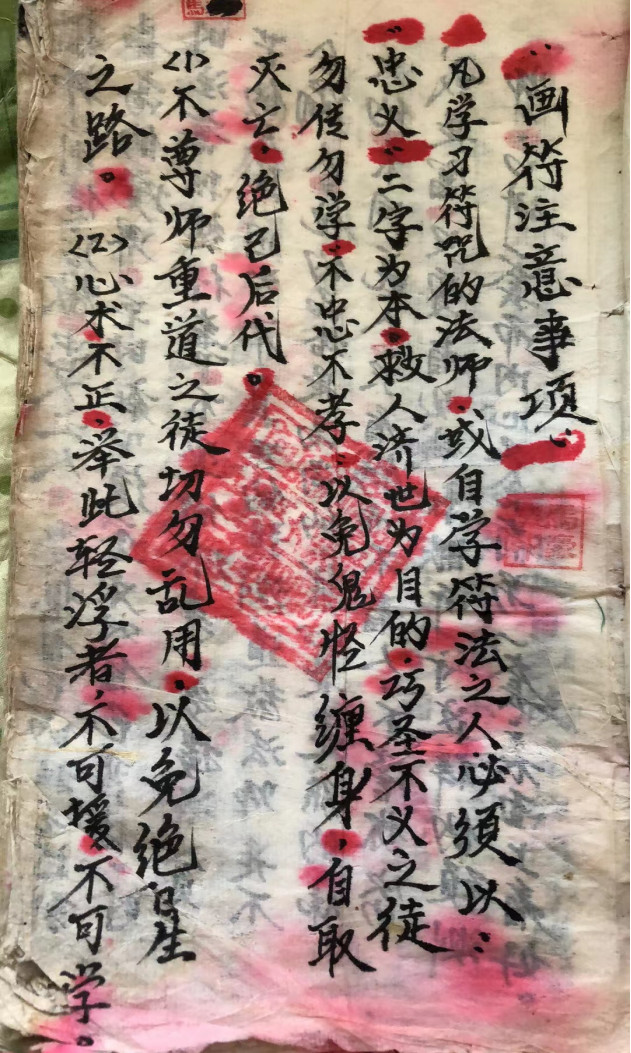 “画符注意事项”
凡学习符咒的法师.或自学符法之人必须以：
“忠义”二字为本.救人济世为目的.巧圣不义之徒
勿传勿学.不忠不孝：以免鬼怪缠身，自取
灭亡.绝己后代.
〈1〉不尊师重道之徒切勿乱用.以免绝自生
之路。〈2〉心术不正.举此轻浮者，不可援.不可学。